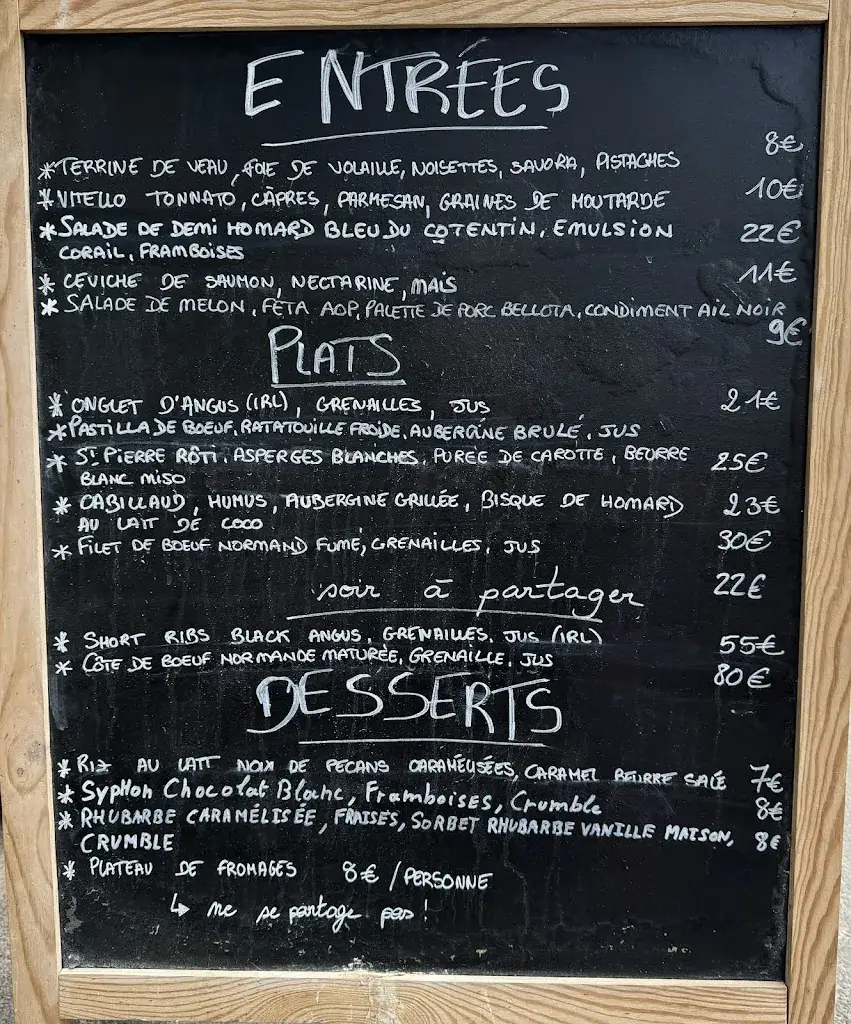 ENTRÉES
*TERRINE DE VEAU, FOIE DE VOLAILLE, NOISETTES, SAVORA, PISTACHES 8€
*VITELLO TONNATO, CÂPRES, PARMESAN, GRAINES DE MOUTARDE 10€
*SALADE DE DEMI HOMARD BLEU DU COTENTIN, EMULSION 22€
CORAIL, FRAMBOISES
* CEVICHE DE SAUMON, NECTARINE, MAÏS 11€
* SALADE DE MELON, FÉTA AOP, PALETTE DE PORC BELLOTA, CONDIMENT AIL NOIR
9€
PLATS
* ONGLET D'ANGUS (IRL), GRENAILLES, JUS 21€
*PASTILLA DE BOEUF, RATATOUILLE FROIDE, AUBERGINE BRULÉ, JUS
* St PIERRE RÔTI, ASPERGES BLANCHES, PURÉE DE CAROTTE, BEURRE 25€
BLANC MISO
* CABILLAUD, HUMUS, AUBERGINE GRILLÉE, BISQUE DE HOMARD 23€
AU LAIT DE COCO
* FILET DE BOEUF NORMAND FUMÉ, GRENAILLES, JUS 30€
soir à partager 22€
* SHORT RIBS BLACK ANGUS, GRENAILLES, JUS (IRL) 55€
* CÔTE DE BOEUF NORMANDE MATURÉE, GRENAILLE, JUS 80€
DESSERTS
* RIZ AU LAIT NOIX DE PECANS CARAMÉLISÉES, CARAMEL BEURRE SALÉ 7€
* SypHon Chocolat Blanc, Framboises, Crumble 8€
* RHUBARBE CARAMÉLISÉE, FRAISES, SORBET RHUBARBE VANILLE MAISON, 8€
CRUMBLE
* PLATEAU DE FROMAGES 8€ / PERSONNE
↳ ne se partage pas !